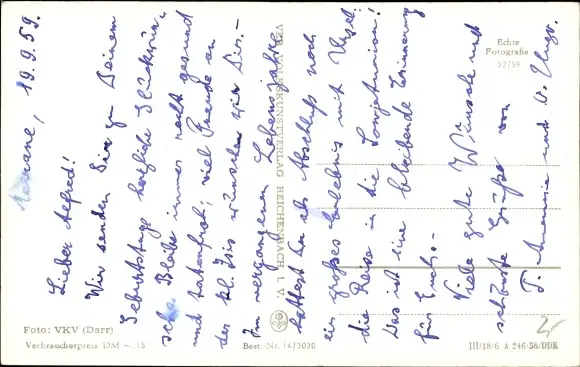 Meerane, 19.9.59.
Lieber Alfred!
Wir senden Dir zu Deinem
Geburtstage herzliche Glückwün-
sche. Bleibe immer recht gesund
und tatenfroh, viel Freude an
der kl. Iris wünschen wir Dir. –
Im vergangenen Lebensjahre
hattest Du als Abschluß noch
ein großes Erlebnis mit Ursel:
die Reise in die Sowjetunion!
Das ist eine bleibende Erinnerung
für Euch. –
Viele gute Wünsche und
schönste Grüße von
T. und O. Hugo.
VEB VOLKSKUNSTVERLAG REICHENBACH I. V.
Echte
Fotografie
52/59
Foto: VKV (Darr)
Verbraucherpreis DM –.15
Best.-Nr. 14/3030
III/18/6 A 246/58/DDR